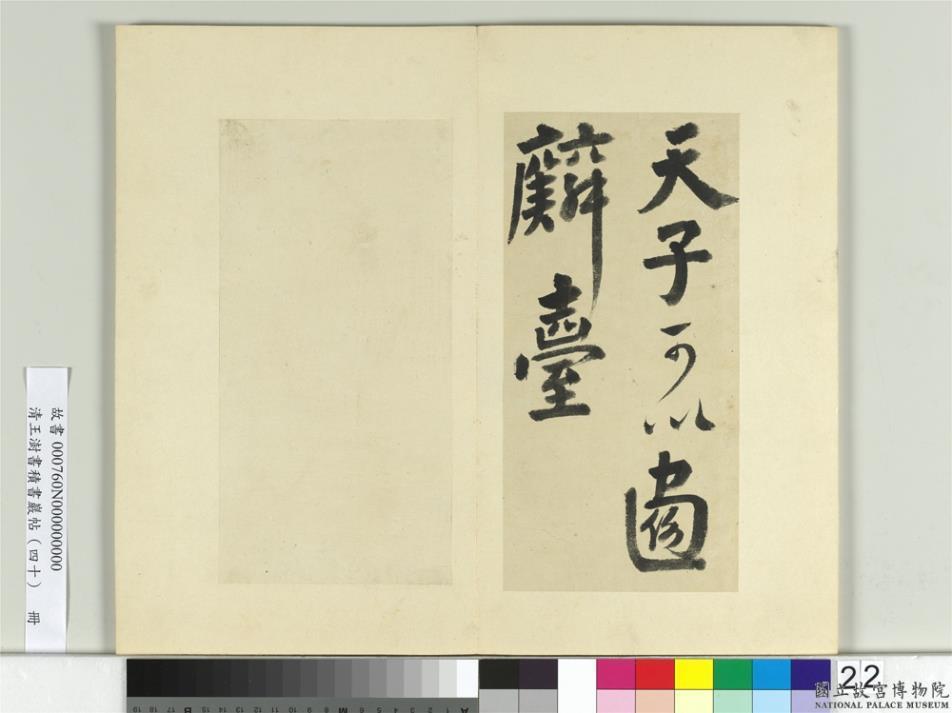 天子可以
麟臺
故書 000760N000000000
清王澍書積書巖帖（四十） 冊
22
國立故宮博物院
NATIONAL PALACE MUSEUM